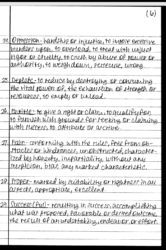 (6)
Oppression - handship or injustice, to impose excessive
burdens upon, to overload, to treat with unjust
rigor or cruelty, to crush by abuse of power or
authority, to weigh down, excessive, wrong
Deplete - to reduce by destroying or consuming
the vital power of, the exhaustion of strength or
resources, to empty or unload
Entitle - to give a right or claim, to qualification
to furnish with grounds for seeking or claiming
with success, to attribute or ascribe
Fair - conforming with the rules, free from ob-
stacles or hindrances, unobstructed, character-
ized by honesty, impartiality, without any
suspicion, bias, any marked characteristic
Proper - marked by suitability or rightness in an
correct, appropriate, excellent
Successful - resulting in success, accomplishing
what was proposed, favorable or desired outcome
the result of an undertaking, endeavor or effort